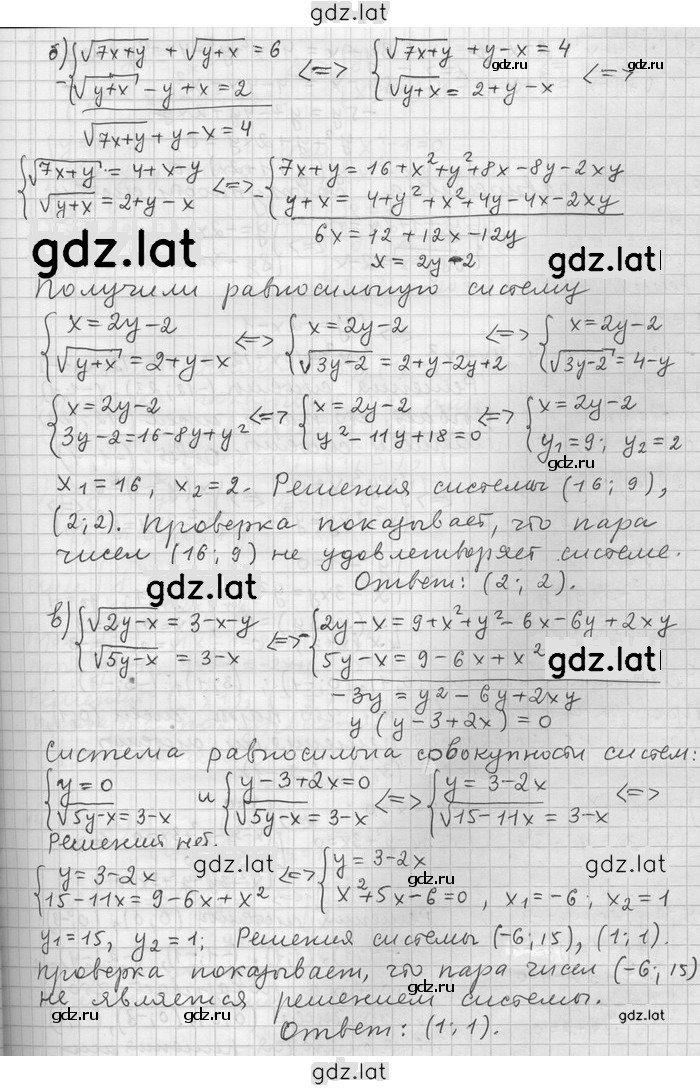 gdz.lat
б) {√(7x+y) + √(y+x) = 6
- {√(y+x) - y + x = 2
√(7x+y) + y - x = 4
<=> {√(7x+y) + y - x = 4
{√(y+x) = 2 + y - x <=>
{√(7x+y) = 4 + x - y
{√(y+x) = 2 + y - x
<=> {7x + y = 16 + x² + y² + 8x - 8y - 2xy
- {y + x = 4 + y² + x² + 4y - 4x - 2xy
6x = 12 + 12x - 12y
x = 2y - 2
gdz.lat gdz.lat
Получили равносильную систему
{x = 2y - 2
{√(y+x) = 2 + y - x
<=> {x = 2y - 2
{√(3y-2) = 2 + y - 2y + 2
<=> {x = 2y - 2
{√(3y-2) = 4 - y
{x = 2y - 2
{3y - 2 = 16 - 8y + y²
<=> {x = 2y - 2
{y² - 11y + 18 = 0
<=> {x = 2y - 2
{y₁ = 9; y₂ = 2
gdz.lat gdz.lat
x₁ = 16, x₂ = 2. Решения системы (16; 9),
(2; 2). Проверка показывает, что пара
чисел (16; 9) не удовлетворяет системе.
gdz.lat
Ответ: (2; 2).
в) {√(2y-x) = 3 - x - y
{√(5y-x) = 3 - x
<=> - {2y - x = 9 + x² + y² - 6x - 6y + 2xy
{5y - x = 9 - 6x + x²
gdz.lat
-3y = y² - 6y + 2xy
y (y - 3 + 2x) = 0
Система равносильна совокупности систем:
{y = 0
{√(5y-x) = 3 - x
и {y - 3 + 2x = 0
{√(5y-x) = 3 - x
<=> {y = 3 - 2x
{√(15-11x) = 3 - x <=>
Решений нет.
gdz.lat gdz.lat
{y = 3 - 2x
{15 - 11x = 9 - 6x + x²
<=> {y = 3 - 2x
{x² + 5x - 6 = 0, x₁ = -6; x₂ = 1
y₁ = 15, y₂ = 1; Решения системы (-6; 15), (1; 1).
Проверка показывает, что пара чисел (-6; 15)
не является решением системы.
Ответ: (1; 1).
gdz.lat
gdz.lat